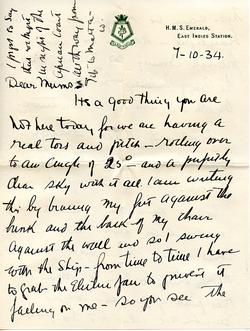 H.M.S. EMERALD,
EAST INDIES STATION.
7-10-34.
I forgot to say
that we kept
in sight of the
African Coast
all the way from
to
Dear Mums
Its a good thing you are
not here today for we are having a
real toss and pitch - rolling over
to an angle of 25° - and a perfectly
clear sky with it all. I am writing
this by bracing my feet against the
bunk and the back of my chair
against the wall and so I swing
with the Ship - from time to time I have
to grab the Electric fan to prevent it
falling on me - so you see the